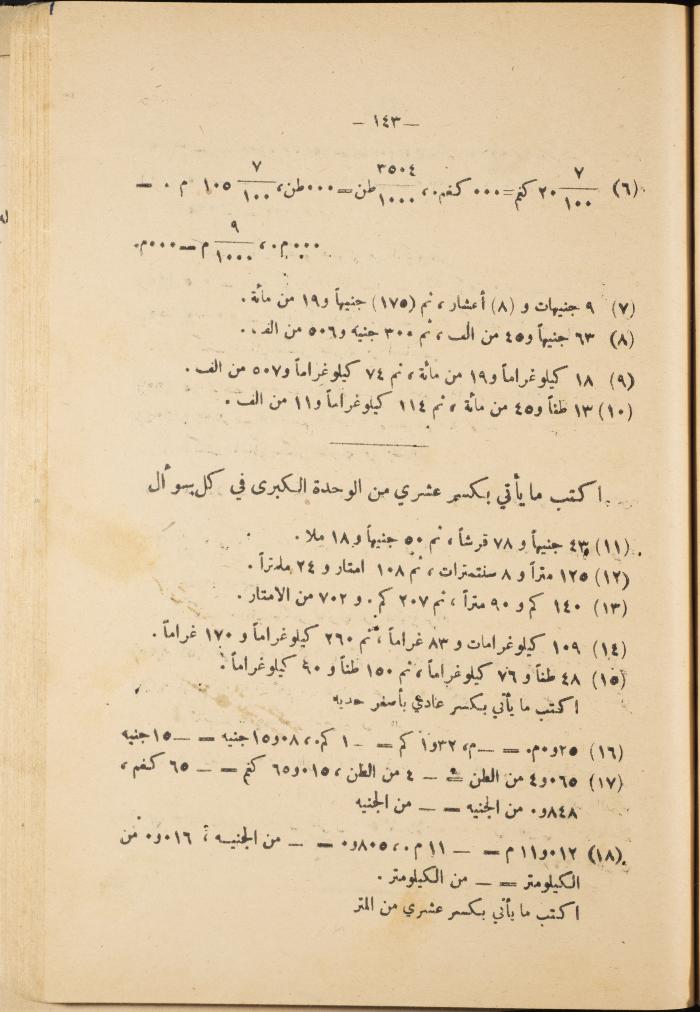 — ١٤٣ —
(٦) ٢٠ ٧/١٠٠ كغم = ٠٠٠ كغم، ٣٥٠٤/١٠٠٠ طن = ٠٠٠ طن، ١٠٥ ٧/١٠٠ م . =
٠٠٠ م.، ٩/١٠٠٠ م = ٠٠٠ م.
(٧) ٩ جنيهات و (٨) أعشار، ثم (١٧٥) جنيهاً و١٩ من مائة .
(٨) ٦٣ جنيهاً و٤٥ من الف، ثم ٣٠٠ جنيه و٥٠٦ من الف .
(٩) ١٨ كيلوغراماً و١٩ من مائة، ثم ٧٤ كيلوغراماً و٥٠٧ من الف .
(١٠) ١٣ طناً و٤٥ من مائة، ثم ١١٤ كيلوغراماً و١١ من الف .
اكتب ما يأتي بكسر عشري من الوحدة الكبرى في كل سوأل
(١١) ٤٣ جنيهاً و ٧٨ قرشاً، ثم ٥٠ جنيهاً و ١٨ ملا .
(١٢) ١٢٥ متراً و ٨ سنتمترات، ثم ١٠٨ امتار و ٢٤ ملمتراً .
(١٣) ١٤٠ كم و ٩٠ متراً، ثم ٢٠٧ كم . و ٧٠٢ من الامتار .
(١٤) ١٠٩ كيلوغرامات و ٨٣ غراماً، ثم ٢٦٠ كيلوغراماً و ١٧٠ غراماً .
(١٥) ٤٨ طناً و ٧٦ كيلوغراماً، ثم ١٥٠ طناً و ٩٠ كيلوغراماً .
اكتب ما يأتي بكسر عادي بأصغر حديه
(١٦) ٢٥و٠م. = — م، ٣٢و١ كم = — ١ كم.، ٠٨و١٥ جنيه = — ١٥ جنيه
(١٧) ٠٦٥و٤ من الطن = — ٤ من الطن، ٠١٥و٦٥ كغم = — ٦٥ كغم،
٨٤٨و٠ من الجنيه = — من الجنيه
(١٨) ٠١٢و١١ م = — ١١ م.، ٨٠٥و٠ = — من الجنيه، ٠١٦و٠ من
الكيلومتر = — من الكيلومتر .
اكتب ما يأتي بكسر عشري من المتر